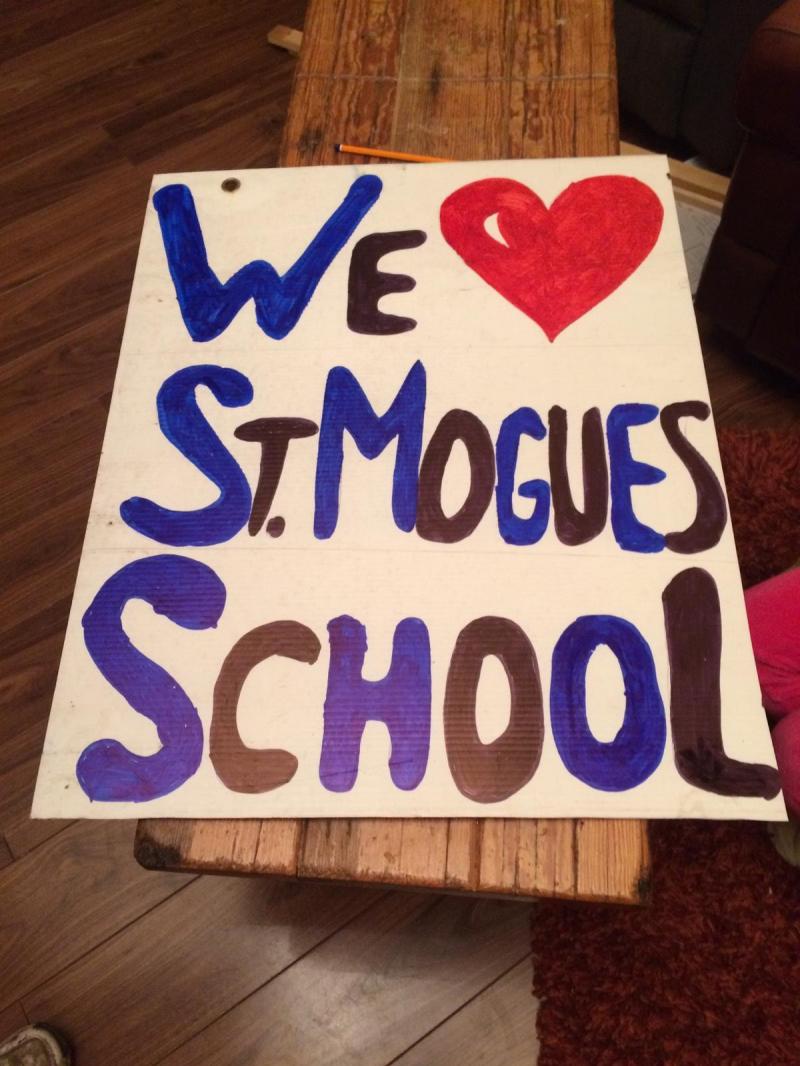 WE ❤
ST. MOGUES
SCHOOL